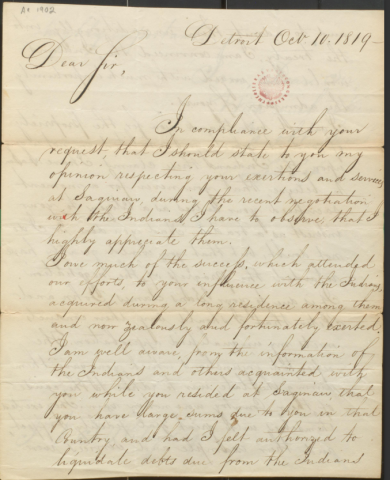 Ac. 1902
Detroit Oct. 10. 1819-
Dear Sir,
In compliance with your
request, that I should state to you my
opinion respecting your exertions and services
at Saginaw, during the recent negotiation
with the Indians, I have to observe that I
highly appreciate them.
I owe much of the success, which attended
our efforts, to your influence with the Indians,
acquired during a long residence among them
and now zealously and fortunately exerted.
I am well aware, from the information of
the Indians and others acquainted with
you while you resided at Saginaw, that
you have large sums due to you in that
Country and had I felt authorized to
liquidate debts due from the Indians